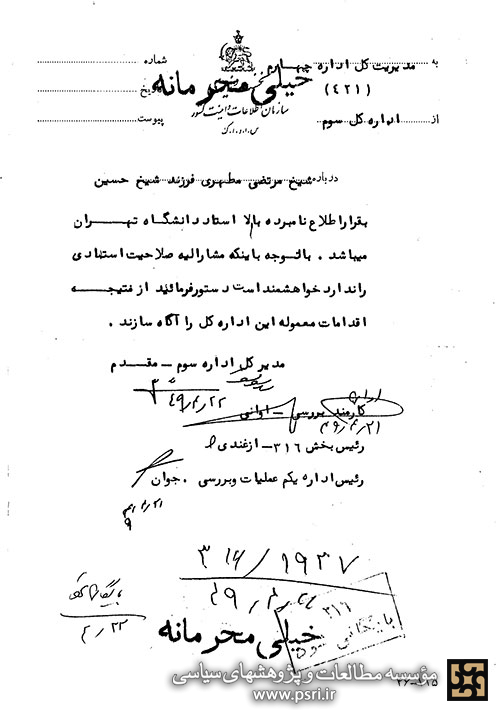 به مدیریت کل اداره چهارم شماره
خیلی محرمانه
(۴۲۱) تاریخ
سازمان اطلاعات و امنیت کشور
از اداره کل سوم پیوست
س.ا.و.ا.ک
درباره شیخ مرتضی مطهری فرزند شیخ حسین
بقرار اطلاع نامبرده بالا استاد دانشگاه تهران
میباشد . باتوجه باینکه مشارالیه صلاحیت استادی
را ندارد خواهشمند است دستور فرمائید از نتیجه
اقدامات معموله این اداره کل را آگاه سازند .
مدیر کل اداره سوم – مقدم
۴۹/۴/۲۲
کارمند بررسی – اوانی
۴۹/۴/۲۱
رئیس بخش ۳۱۶ – ازغندی
رئیس اداره یکم عملیات و بررسی . جوان
۳۱۶/۱۹۳۷
بایگانی شود
۴/۲۳
۳۱۶
بایگانی
خیلی محرمانه
مؤسسه مطالعات و پژوهشهای سیاسی
www.psri.ir